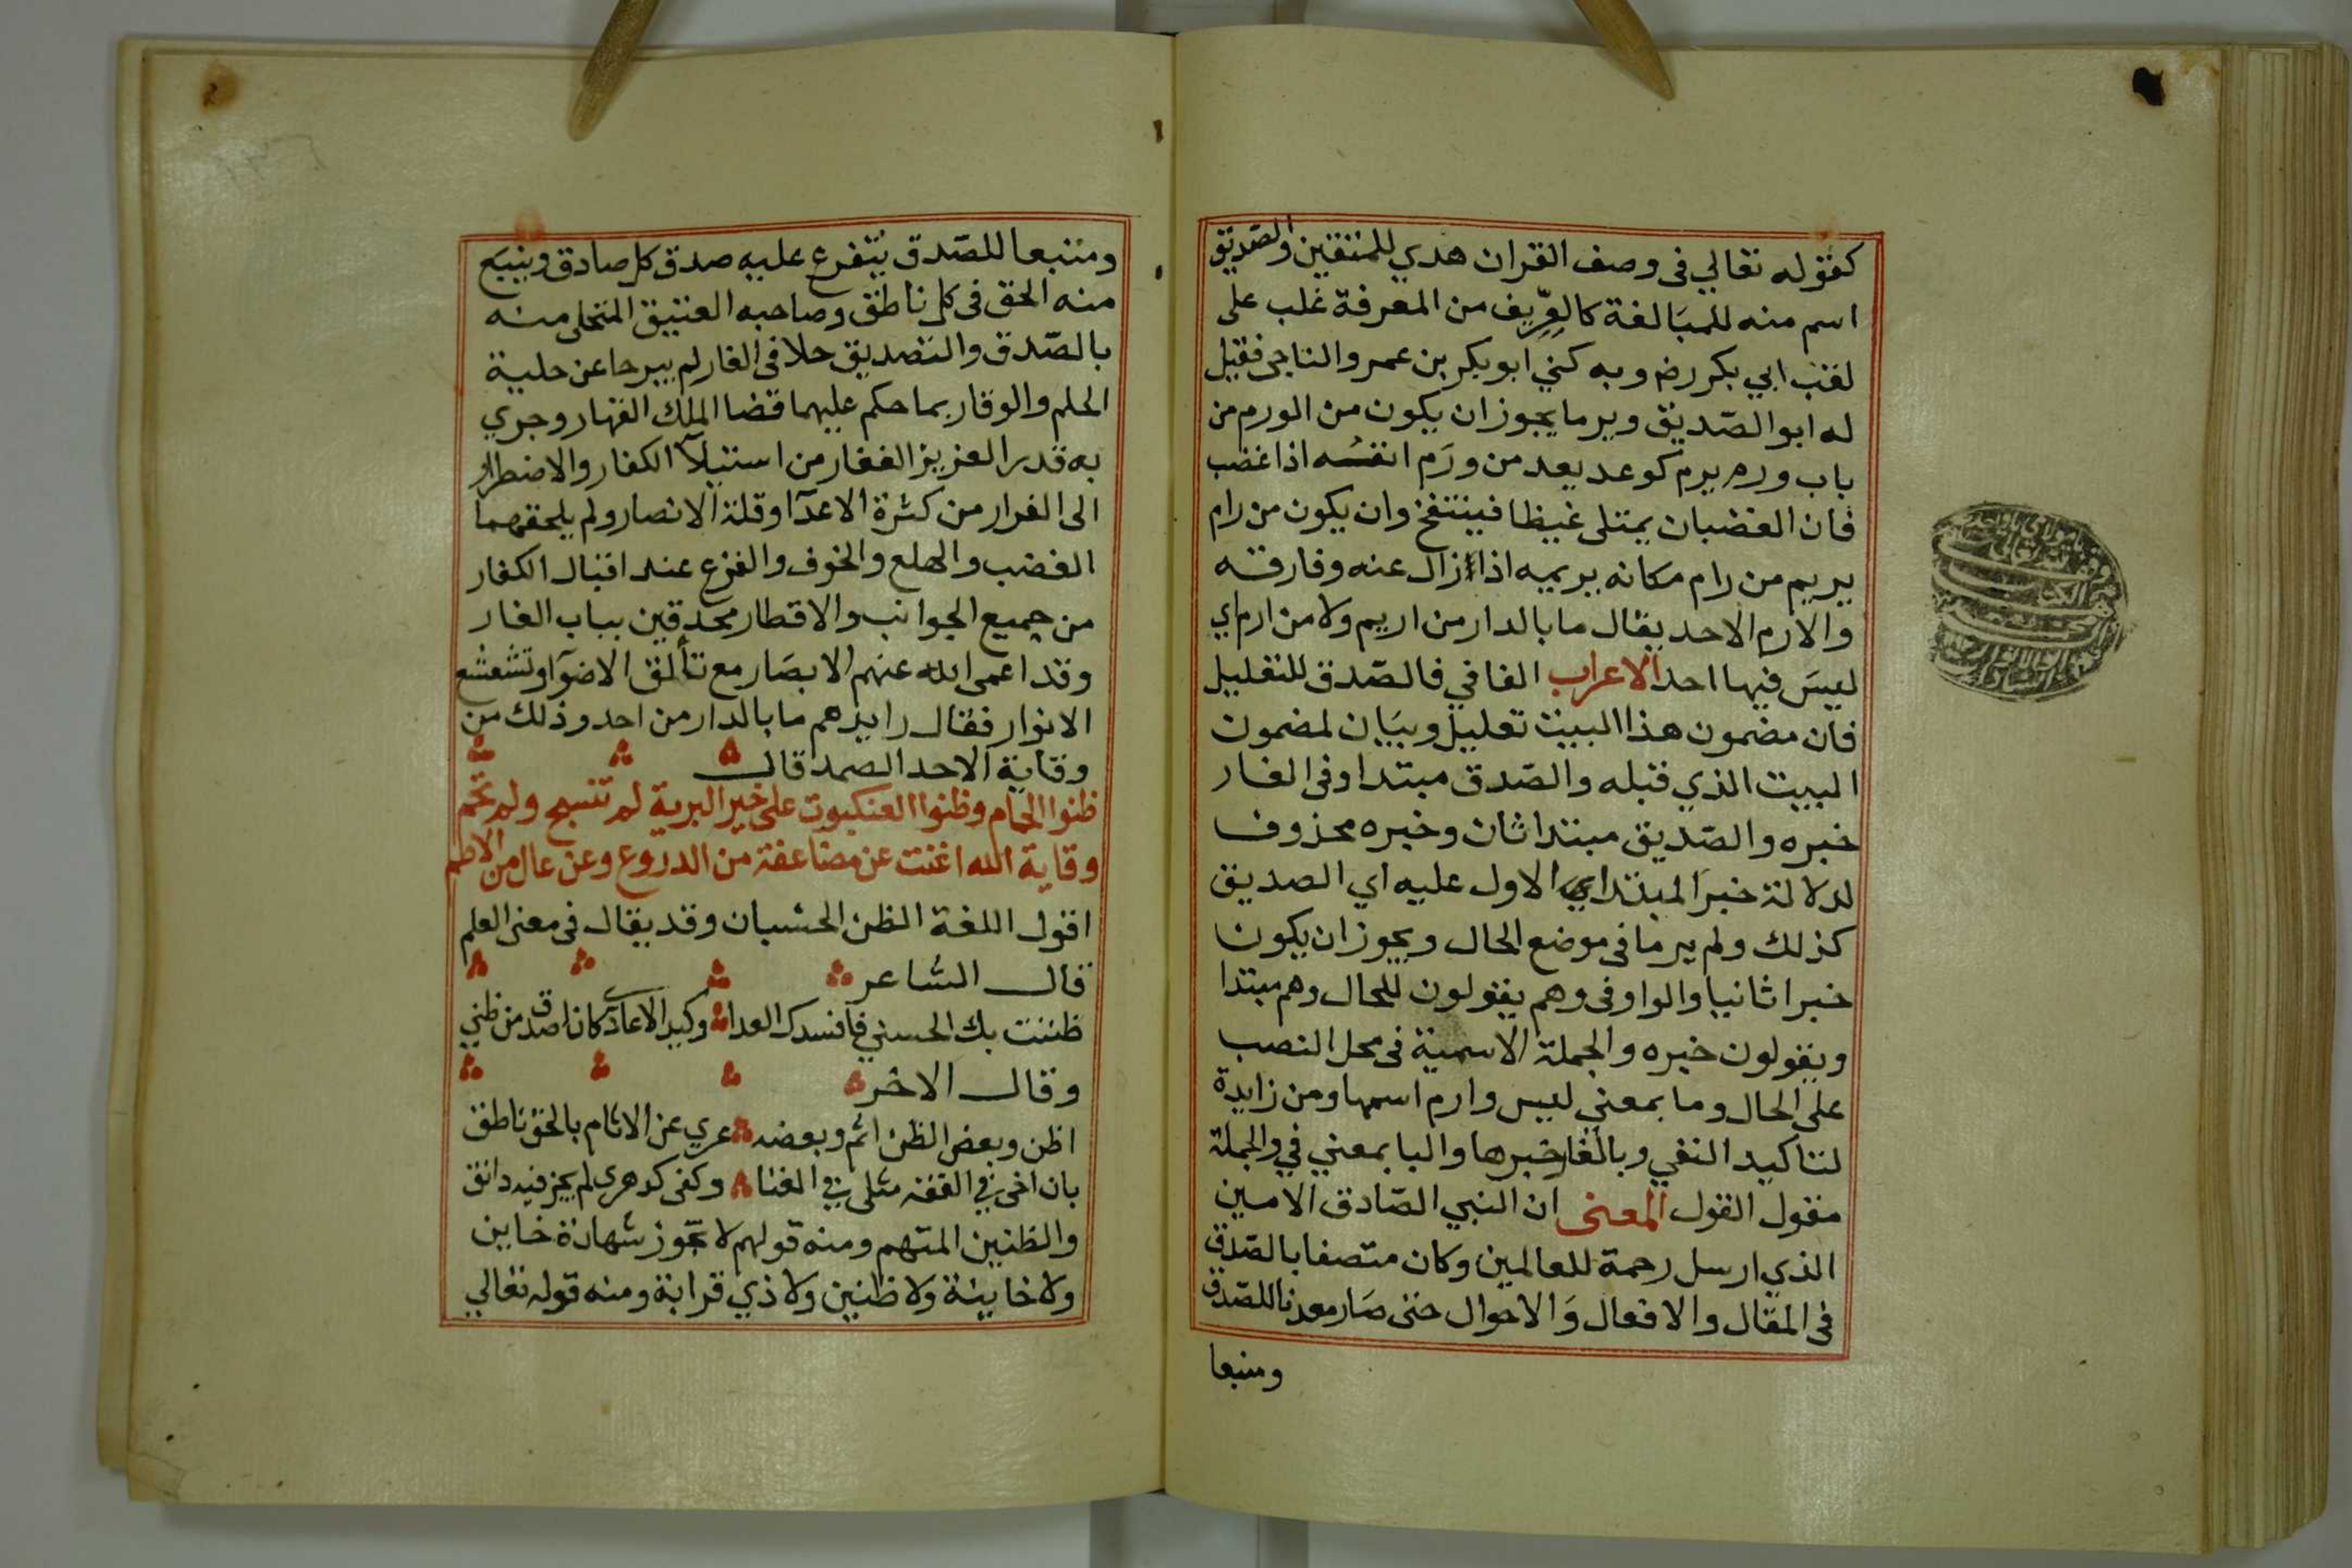 كقوله تعالي فى وصف القران هدي للمتقين والصّديق
اسم منه للمبَالغة كالعِرّيف من المعرفة غلب على
لقب ابي بكر رضـ وبه كني ابو بكر بن عمر والناجى فقيل
له ابو الصّديق ويرما يجوز ان يكون من الورم من
باب ورم يرم كوعد يعد من ورَم انفسُه اذا غضب
فان الغضبان يمتلى غيظا فينتفخ وان يكون من رام
يريم من رام مكانه يريمه اذا زال عنه وفارقه
والارم الاحد يقال ما بالدار من اريم ولا من ارم اي
ليسَ فيها احد الاعراب الفا في فالصّدق للتعليل
فان مضمون هذا البيت تعليل وبيَان لمضمون
البيت الذي قبله والصّدق مبتدا وفى الغار
خبره والصّديق مبتدا ثان وخبره محذوف
لدلالة خبرَ المبتدا الاول عليه اي الصديق
كذلك ولم يرما فى موضع الحال ويجوز ان يكون
خبرا ثانيا والواو فى وهم يقولون للحال وهم مبتدا
ويقولون خبره والجملة الاسمية فى محل النصب
على الحال وما بمعني ليس وارم اسمها ومن زايدة
لتاكيد النفي وبالغار خبرها والبا بمعني في والجملة
مقول القول المعنى ان النبي الصّادق الامين
الذي ارسل رحمة للعالمين وكان متصفا بالصّدق
فى المقال والافعال وَالاحوال حتى صَار معدنا للصّدق
ومنبعا
ومنبعا للصّدق يتفرع عليه صدق كل صادق وينبع
منه الحق فى كل ناطق وصاحبه العتيق المتحلى منه
بالصّدق والتصديق حلا فى الغار لم يبرحا عن حلية
الحلم والوقار بما حكم عليهما قضا الملك القهار وجري
به قدر العزيز الغفار من استيلآ الكفار والاضطرار
الى الفرار من كثرة الاعدآ وقلة الانصار ولم يلحقهما
الغضب والهلع والخوف والفزع عند اقبال الكفار
من جميع الجوانب والاقطار محدقين بباب الغار
وقد اعمى الله عنهم الابصَار مع تألق الاضوآ وتشعشع
الانوار فقال رايدهم ما بالدار من احد وذلك من
وقاية الاحد الصمد قال
ظنوا الحمام وظنوا العنكبوت على خير البرية لم تنسج ولم تحم
وقاية الله اغنت عن مضاعفة من الدروع وعن عال من الاطم
اقول اللغة الظن الحسبان وقد يقال فى معنى العلم
قال الشاعر
ظننت بك الحسني فافسدك العدا وكيد الاعادي كان اصدق من ظني
وقال الاخر
اظن وبعض الظن اثم وبعضه عري عن الاثام بالحق ناطق
بان اخى في الفقه مثلى في الغنا وكفى كدهرى لم يجز فيه دانق
والظنين المتهم ومنه قولهم لا تجوز شهادة خاين
ولا خاينة ولا ظنين ولا ذي قرابة ومنه قوله تعالي